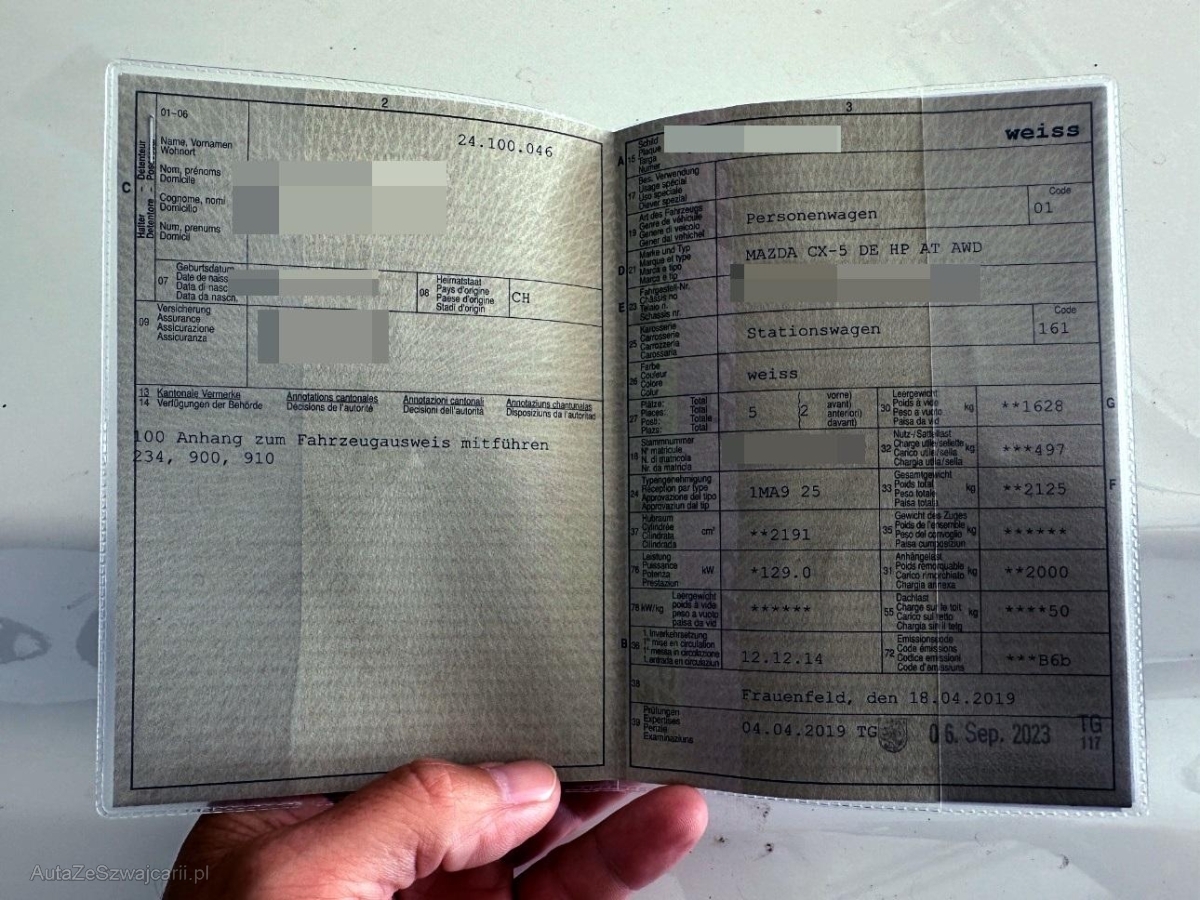 2
01-06
24.100.046
C
Halter - Detenteur
Detentore - Poss.
Name, Vornamen
Wohnort
Nom, prénoms
Domicile
Cognome, nomi
Domicilio
Num, prenums
Domicil
07
Geburtsdatum
Date de naiss
Data di nasc
Data da naschn.
08
Heimatstaat
Pays d'origine
Paese d'origine
Stadi d'origin
CH
09
Versicherung
Assurance
Assicurazione
Assicuranza
13 Kantonale Vermerke Annotations cantonales Annotazioni cantonali Annotaziuns chantunalas
14 Verfügungen der Behörde Décisions de l'autorité Decisioni dell'autorità Disposiziuns da l'autoritad
100 Anhang zum Fahrzeugausweis mitführen
234, 900, 910
3
A
15
Schild
Plaque
Targa
weiss
17
Bes. Verwendung
Usage spécial
Uso speciale
Diever spezial
19
Art des Fahrzeugs
Genre de véhicule
Genere di veicolo
Gener dal vehichel
Personenwagen
Code
01
D
21
Marke und Typ
Marque et type
Marca e tipo
Marca e tip
MAZDA CX-5 DE HP AT AWD
E
23
Fahrgestell-Nr.
Châssis no
Telaio n.
Schassis nr.
25
Karosserie
Carrosserie
Carrozzeria
Carossaria
Stationswagen
Code
161
26
Farbe
Couleur
Colore
Colur
weiss
27
Plätze: Total
Places: Total
Posti: Totale
Plazs: Total
5
(2
vorne)
avant)
anteriori)
davant)
30
Leergewicht
Poids à vide
Peso a vuoto
Paisa da vid
kg
**1628
G
18
Stammnummer
N° matricule
N. di matricola
Nr. da matricla
32
Nutz-/Sattellast
Charge utile/sellette
Carico utile/sella
Chargia utila/sella
kg
***497
24
Typengenehmigung
Réception par type
Approvazione del tipo
Approvaziun dal tip
1MA9 25
33
Gesamtgewicht
Poids total
Peso totale
Paisa totala
kg
**2125
F
37
Hubraum
Cylindrée
Cilindrata
Cilindrada
cm³
**2191
35
Gewicht des Zuges
Poids de l'ensemble
Peso del convoglio
Paisa cumposiziun
kg
******
76
Leistung
Puissance
Potenza
Prestaziun
kW
*129.0
31
Anhängelast
Poids remorquable
Carico rimorchiato
Chargia annexa
kg
**2000
78 kW/kg
Leergewicht
poids à vide
peso a vuoto
paisa da vid
******
55
Dachlast
Charge sur le toit
Carico sul tetto
Chargia sin il tetg
kg
****50
B
36
1. Inverkehrsetzung
1re mise en circulation
1a messa in circolazione
1. entrada en circulaziun
12.12.14
72
Emissionscode
Code émissions
Codice emissioni
Code d'emissiuns
***B6b
38
Frauenfeld, den 18.04.2019
39
Prüfungen
Expertises
Perizie
Examinaziuns
04.04.2019 TG
06. Sep. 2023
TG
117
AutaZeSzwajcarii.pl